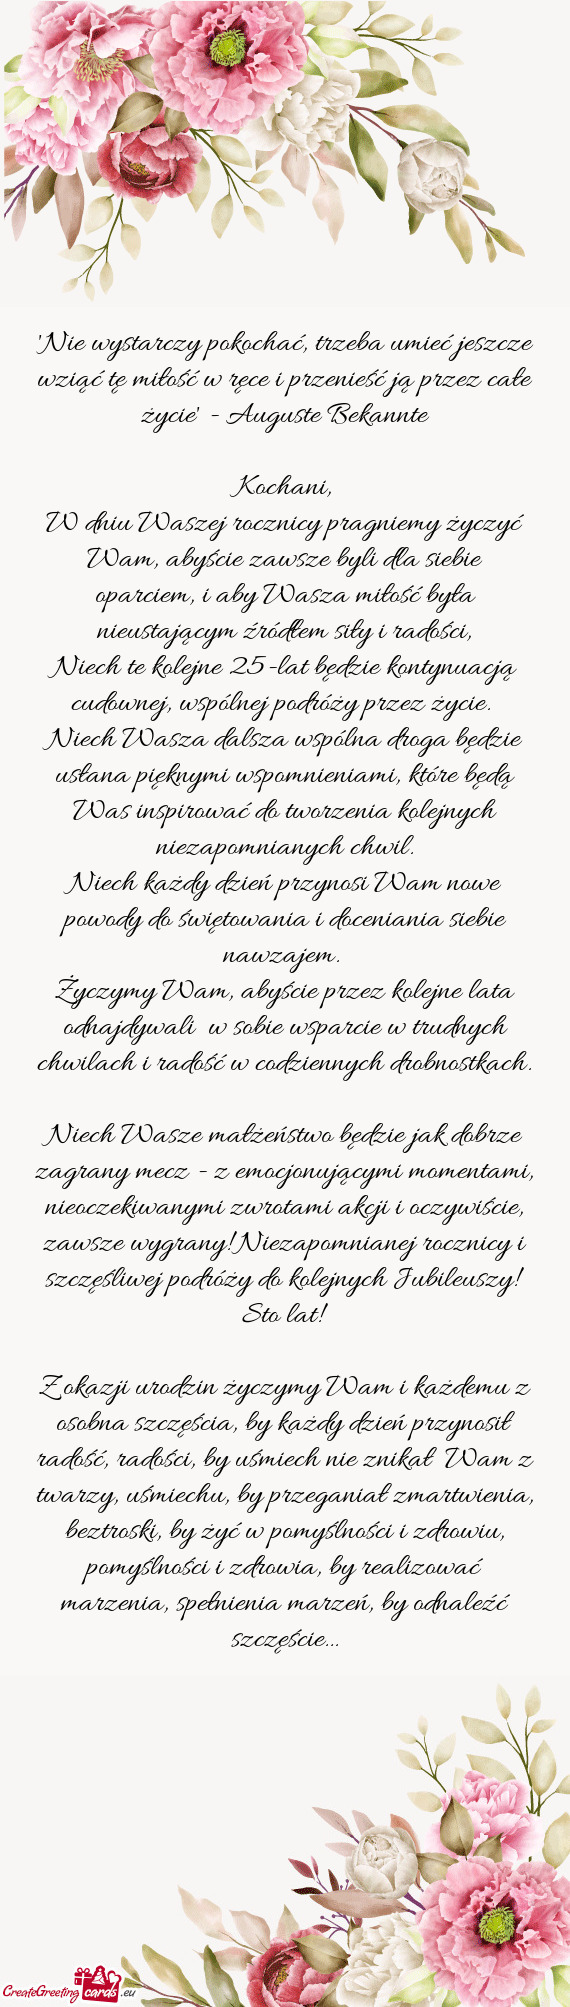 'Nie wystarczy pokochać, trzeba umieć jeszcze
wziąć tę miłość w ręce i przenieść ją przez całe
życie' - Auguste Bekannte
Kochani,
W dniu Waszej rocznicy pragniemy życzyć
Wam, abyście zawsze byli dla siebie
oparciem, i aby Wasza miłość była
nieustającym źródłem siły i radości,
Niech te kolejne 25-lat będzie kontynuacją
cudownej, wspólnej podróży przez życie.
Niech Wasza dalsza wspólna droga będzie
usłana pięknymi wspomnieniami, które będą
Was inspirować do tworzenia kolejnych
niezapomnianych chwil.
Niech każdy dzień przynosi Wam nowe
powody do świętowania i doceniania siebie
nawzajem.
Życzymy Wam, abyście przez kolejne lata
odnajdywali w sobie wsparcie w trudnych
chwilach i radość w codziennych drobnostkach.
Niech Wasze małżeństwo będzie jak dobrze
zagrany mecz - z emocjonującymi momentami,
nieoczekiwanymi zwrotami akcji i oczywiście,
zawsze wygrany! Niezapomnianej rocznicy i
szczęśliwej podróży do kolejnych Jubileuszy!
Sto lat!
Z okazji urodzin życzymy Wam i każdemu z
osobna szczęścia, by każdy dzień przynosił
radość, radości, by uśmiech nie znikał Wam z
twarzy, uśmiechu, by przeganiał zmartwienia,
beztroski, by żyć w pomyślności i zdrowiu,
pomyślności i zdrowia, by realizować
marzenia, spełnienia marzeń, by odnaleźć
szczęście...
CreateGreeting cards .eu